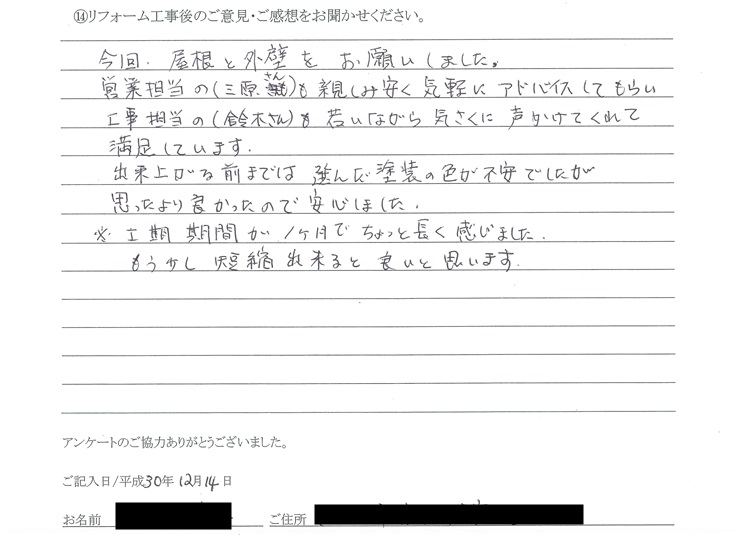 ⑭リフォーム工事後のご意見・ご感想をお聞かせください。
今回、屋根と外壁をお願いしました。
営業担当の(三原さん)も親しみ安く気軽にアドバイスしてもらい
工事担当の(鈴木さん)も若いながら気さくに声かけてくれて
満足しています.
出来上がる前までは選んだ塗装の色が不安でしたが
思ったより良かったので安心しました.
※工期期間が1ヶ月でちょっと長く感じました.
もう少し短縮出来ると良いと思います.
アンケートのご協力ありがとうございました。
ご記入日/平成30年12月14日
お名前 ご住所